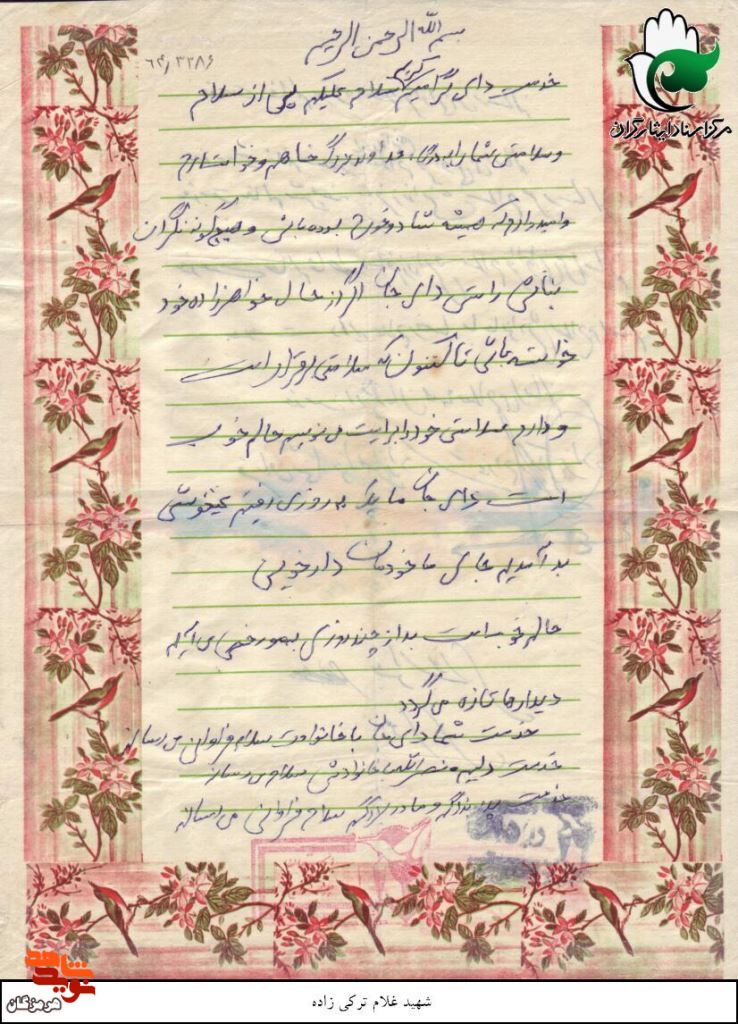 بسم الله الرحمن الرحیم
۶۴٫۳۲۸۶
مرکز اسناد ایثارگران
خدمت دای گرامیم سلام علیکم پس از سلام
وسلامتی شما را به درگاه خداوند بزرگ خواهم و خواستارم
وامیدوارم که همیشه شاد و خرم بوده باشی و هیچگونه نگرانی
نباشی راستی دای جان اگر از حال خواهرزاده خود
خواسته باشی تا کنون که سلامتی برقرار است
و دارم سلامتی خود را برایت می نویسم حالم خوب
است دای جان ما یک روزی رفتیم
بد آمدیم جای ما خودمان
حالم خوب است بعد از چند روزی به مرخصی می آیم
دیدارها تازه می گردد
خدمت شما دای جان با خانوادت سلام فراوانی می رسانم
خدمت دایم نصرالله با خانوادش سلام می رسانم
خدمت پدر بزرگم و مادر بزرگم سلام فراوانی می رسانم
نوید شاهد
هرمزگان
شهید غلام ترکی زاده